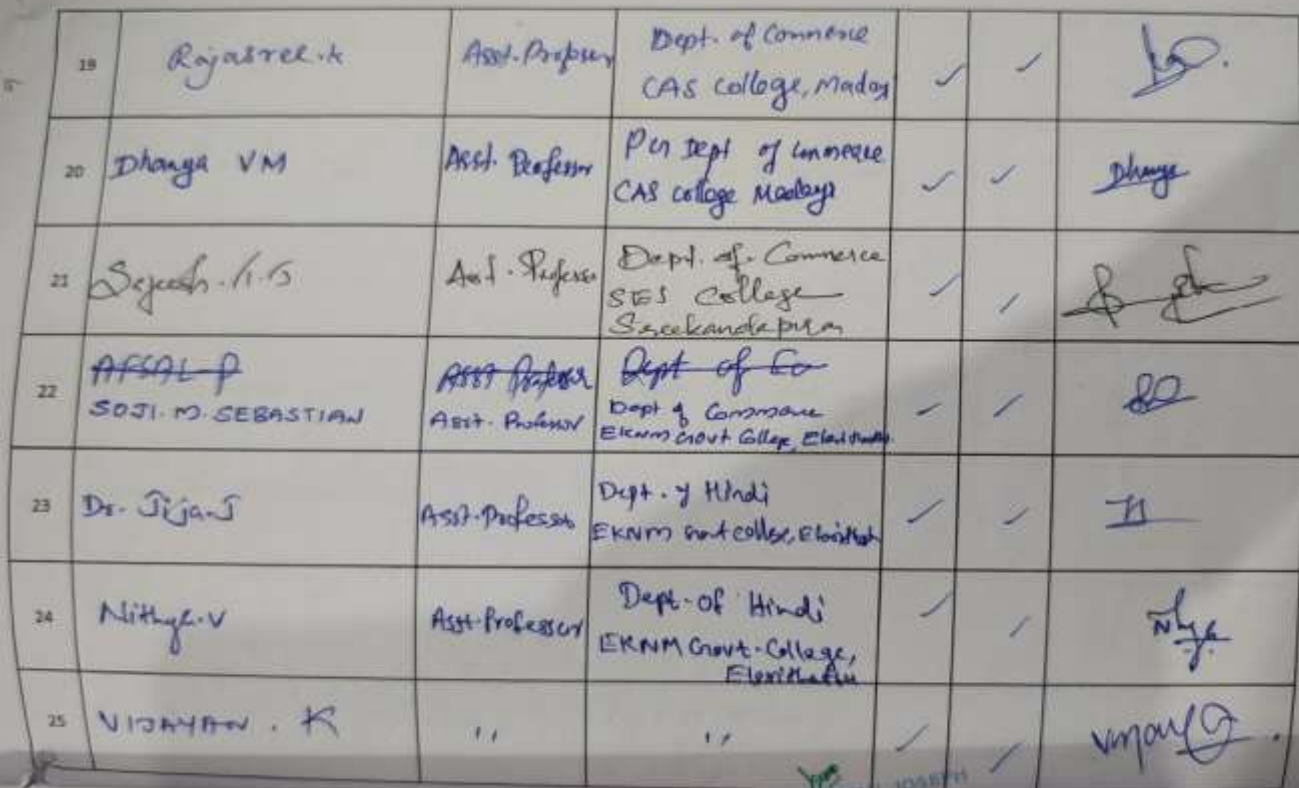 19 Rajasree.k Asst. Professor Dept. of Commerce
CAS College, Madayi
20 Dhanya VM Asst. Professor PG Dept of Commerce
CAS College Madayi
21 Asst. Professor Dept. of. Commerce
SES College
Sreekandapuram
22 AFSAL P Asst Professor Dept of Co
SOJI. M. SEBASTIAN Asst. Professor Dept of Commerce
EKNM Govt College, Elerithattu
23 Dr. Jija.J Asst. Professor Dept. of Hindi
EKNM Govt college, Elerithattu
24 Nithya.V Asst. Professor Dept. of Hindi
EKNM Govt. College,
Elerithattu
25 VIJAYAN . K ,, ,,